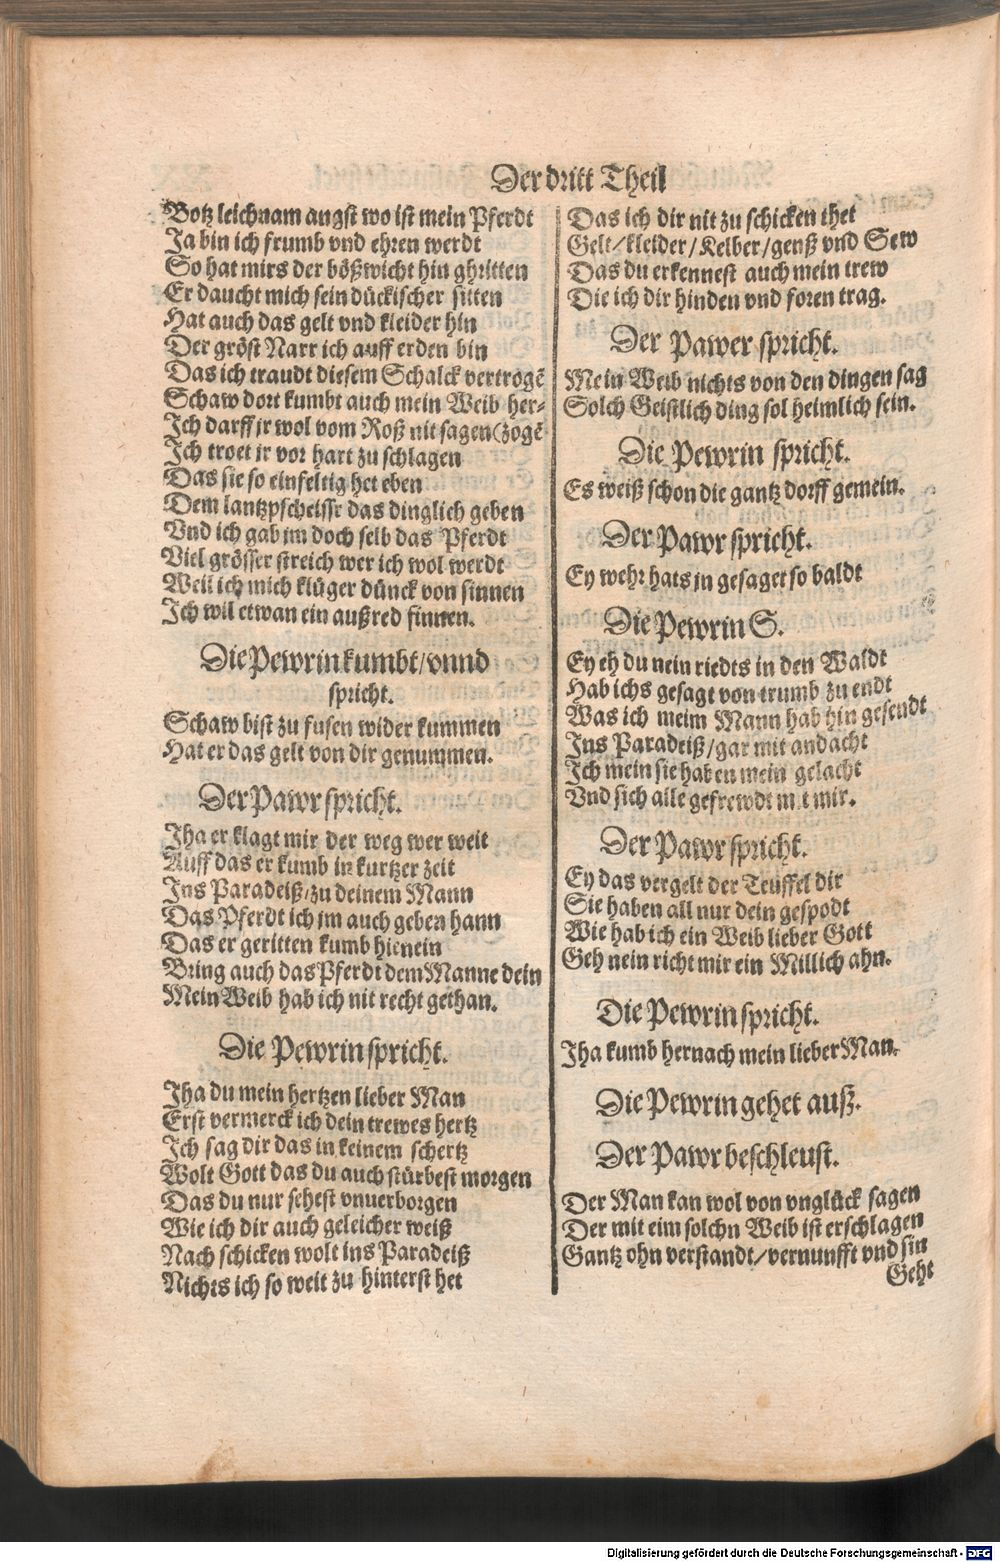 Der dritt Theil
Botz leichnam angst wo ist mein Pferdt
Ja bin ich frumb vnd ehren werdt
So hat mirs der bößwicht hin ghritten
Er daucht mich sein dückischer sitten
Hat auch das gelt vnd kleider hin
Der gröst Narr ich auff erden bin
Das ich traudt diesem Schalck vertrogē
Schaw dort kumbt auch mein Weib her-
Ich darff jr wol vom Roß nit sagen (zogē
Ich troet ir vor hart zu schlagen
Das sie so einfeltig het eben
Dem lantzpscheissr das dinglich geben
Vnd ich gab im doch selb das Pferdt
Viel grösser streich wer ich wol werdt
Weil ich mich klüger dünck von sinnen
Ich wil etwan ein außred finnen.
Die Pewrin kumbt/vnnd
spricht.
Schaw bist zu fusen wider kummen
Hat er das gelt von dir genummen.
Der Pawr spricht.
Jha er klagt mir der weg wer weit
Auff das er kumb in kurtzer zeit
Ins Paradeiß/zu deinem Mann
Das Pferdt ich jm auch geben hann
Das er geritten kumb hienein
Bring auch das Pferdt dem Manne dein
Mein Weib hab ich nit recht gethan.
Die Pewrin spricht.
Jha du mein hertzen lieber Man
Erst vermerck ich dein trewes hertz
Ich sag dir das in keinem schertz
Wolt Gott das du auch stürbest morgen
Das du nur sehest vnuerborgen
Wie ich dir auch geleicher weiß
Nach schicken wolt ins Paradeiß
Nichts ich so weit zu hinterst het
Das ich dir nit zu schicken thet
Gelt/kleider/Kelber/genß vnd Sew
Das du erkennest auch mein trew
Die ich dir hinden vnd foren trag.
Der Pawer spricht.
Mein Weib nichts von den dingen sag
Solch Geistlich ding sol heimlich sein.
Die Pewrin spricht.
Es weiß schon die gantz dorff gemein.
Der Pawr spricht.
Ey wehr hats jn gesaget so baldt
Die Pewrin S.
Ey eh du nein riedts in den Waldt
Hab ichs gesagt von trumb zu endt
Was ich meim Mann hab hin gesendt
Ins Paradeiß/gar mit andacht
Ich mein sie haben mein gelacht
Vnd sich alle gefrewdt mit mir.
Der Pawr spricht.
Ey das vergelt der Teuffel dir
Sie haben all nur dein gespodt
Wie hab ich ein Weib lieber Gott
Geh nein richt mir ein Millich ahn.
Die Pewrin spricht.
Jha kumb hernach mein lieber Man.
Die Pewrin gehet auß.
Der Pawr beschleust.
Der Man kan wol von vnglück sagen
Der mit eim solchn Weib ist erschlagen
Gantz ohn verstandt/vernunfft vnd sin
Geht
Digitalisierung gefördert durch die Deutsche Forschungsgemeinschaft - DFG